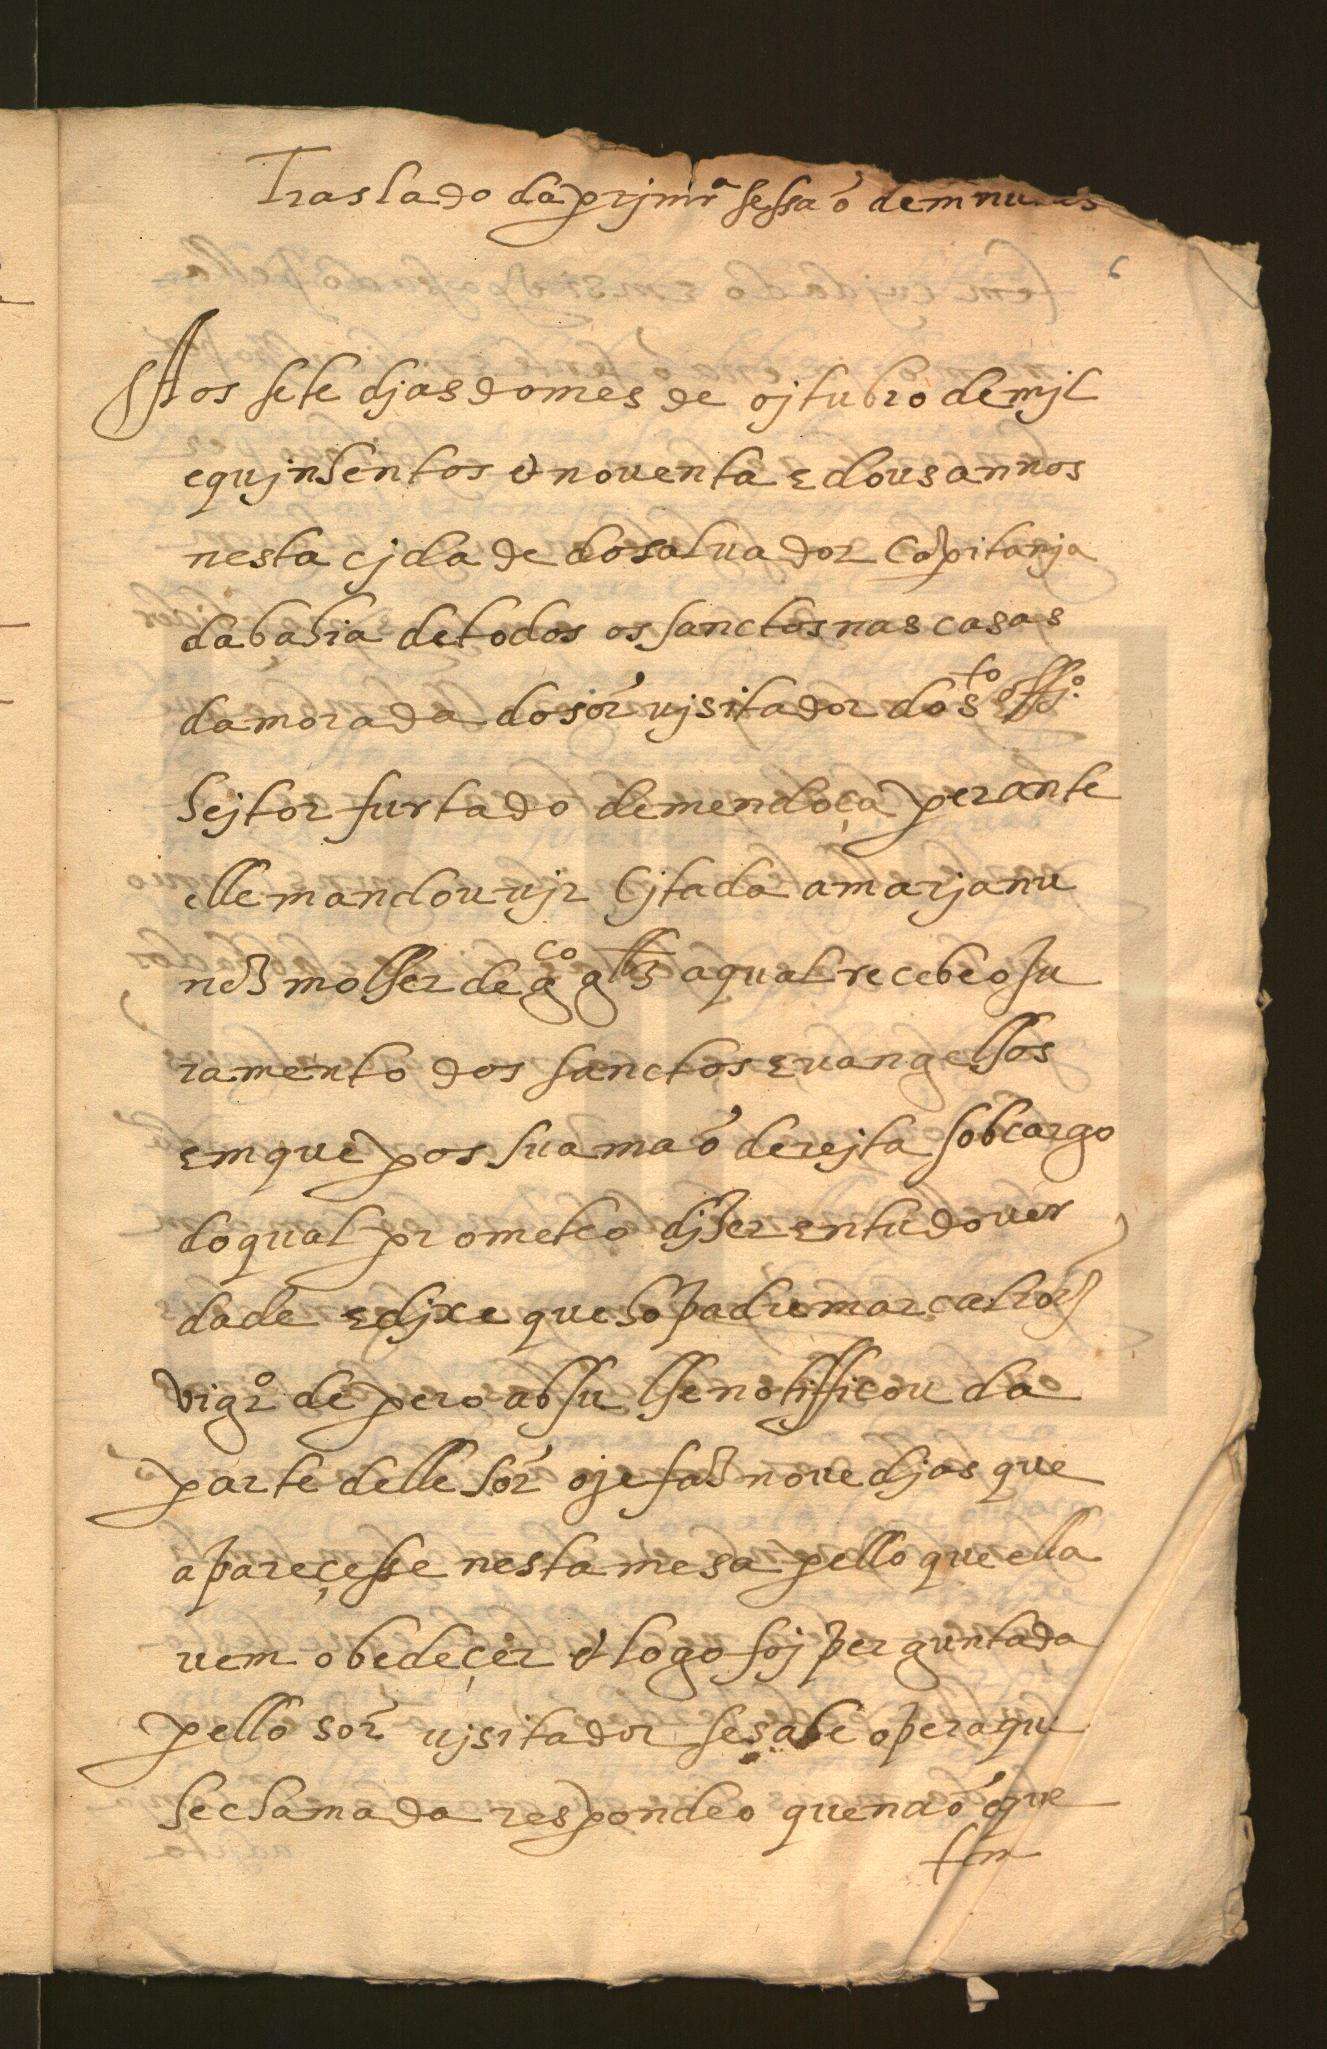 Traslado da prjmrª sessaõ de
6
Aos sete djas do mes de ojtubro de mjl
e qujnhentos & noventa e dous annos
nesta cjdade do saluador Capitanja
da bahia de todos os sanctos nas casas
da morada do sõr ujsitador do sto offjº
hejtor furtado de mendoça perante
elle mandou ujr Cjtada a marja nu
nez molher de gco glz a qual recebeo ju
ramento dos sanctos evangelhos
em que pos sua maõ derejta sob cargo
do qual prometeo djzer em tudo ver
dade e djxe que ho padre marcal roiz
vigrº de pero absu lhe notifficou da
parte delle sõr oje faz nove djas que
apareçesse nesta mesa pello que ella
vem obedeçer & logo foj perguntada
pello sõr ujsitador se sabe o pera qu
he chamada respondeo que naõ e que
sem